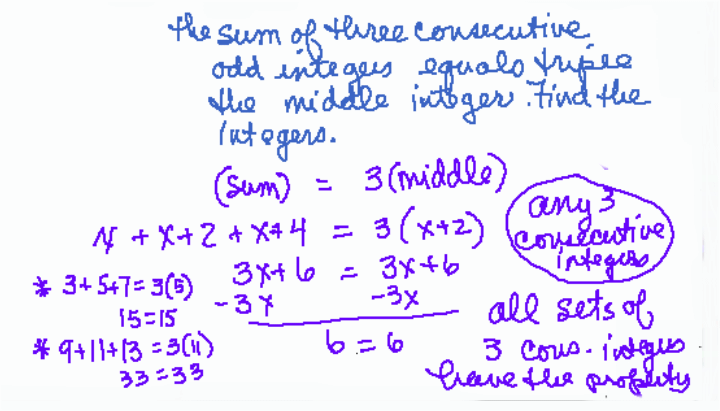 the sum of three consecutive
odd integers equals triple
the middle integer. Find the
integers.
(sum) = 3(middle)
X + X+2 + X+4 = 3(X+2)
any 3
consecutive
integers
3X+6 = 3X+6
* 3+5+7=3(5)
-3X -3X
15=15
6=6
all sets of
* 9+11+13=3(11)
3 cons. integers
33=33
have the property